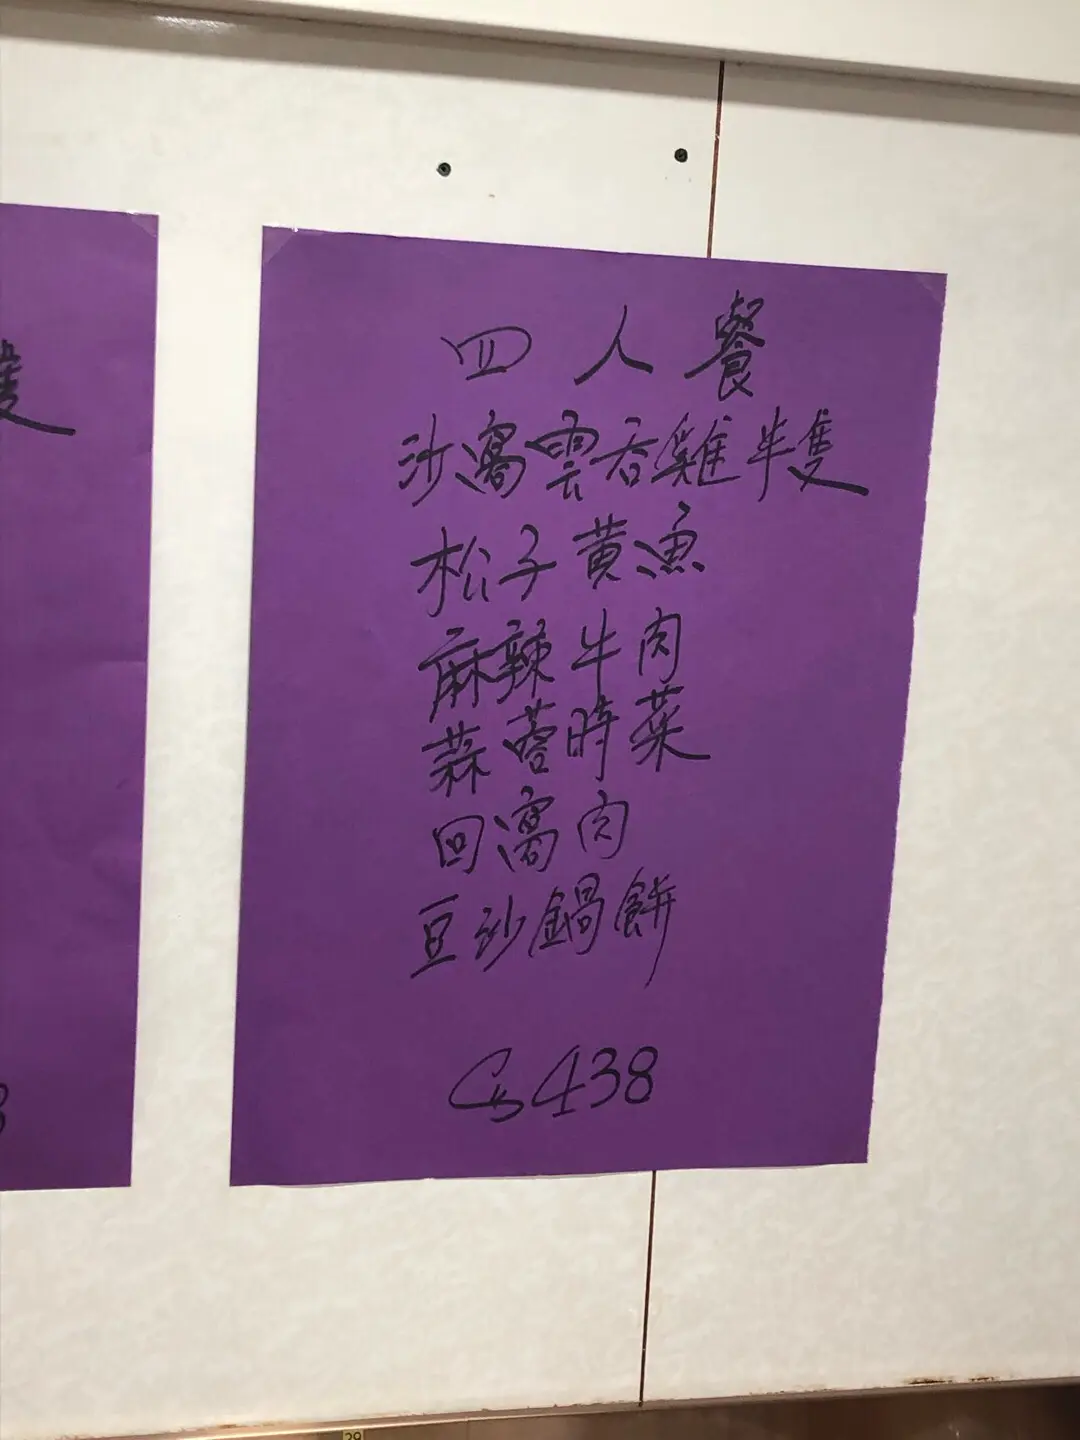 四人餐
沙窩雲吞雞半隻
松子黄魚
麻辣牛肉
蒜蓉時菜
回窩肉
豆沙鍋餅
438
隻
29